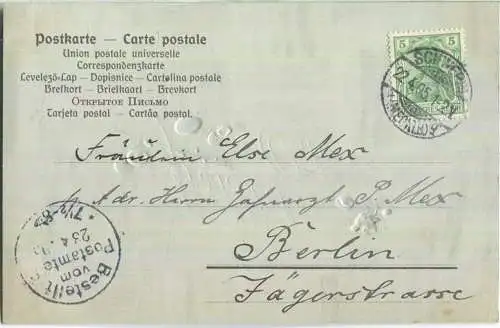 Postkarte — Carte postale
Union postale universelle
Correspondenzkarte
Levelező-Lap — Dopisnice — Cartolina postale
Brefkort — Briefkaart — Brevkort
ОТКРЫТОЕ ПИСЬМО
Tarjeta postal — Cartão postal.
5 5
22.4.05.
Fräulein Else Mex
p. Adr. Herrn Zahnarzt P. Mex
Berlin
Jägerstrasse
Bestellt
vom
Postamte
23.4.
7½-8½